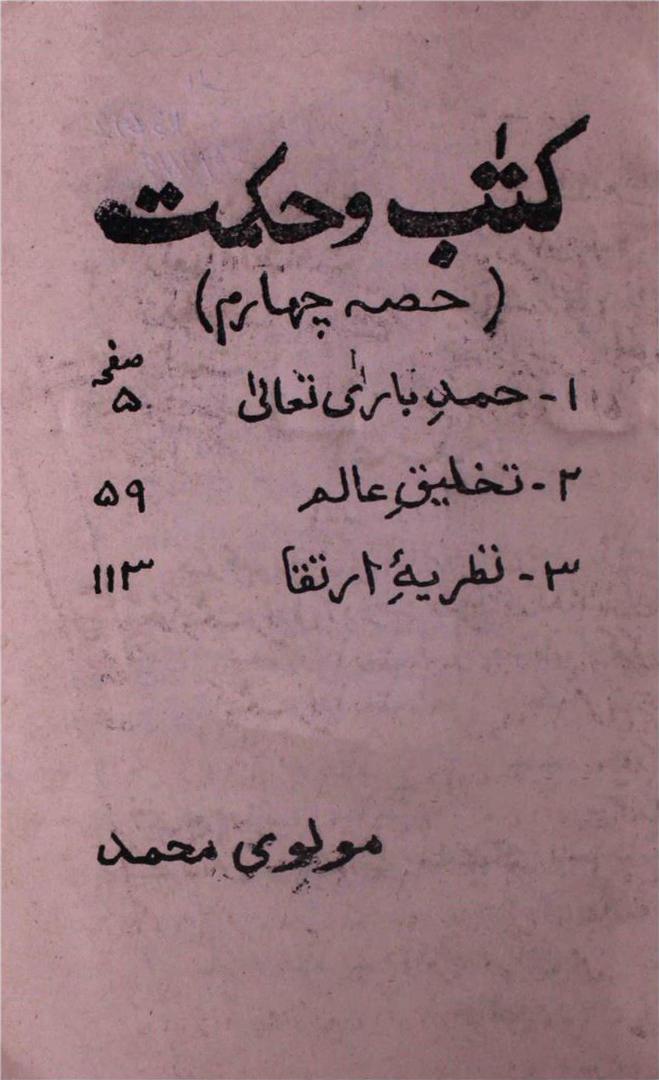 کتٰب و حکمت
(حصہ چہارم)
صفحہ
۱- حمدِ باریٰ تعالیٰ ۵
۲- تخلیقِ عالم ۵۹
۳- نظریۂ ارتقا ۱۱۳
مولوی محمد